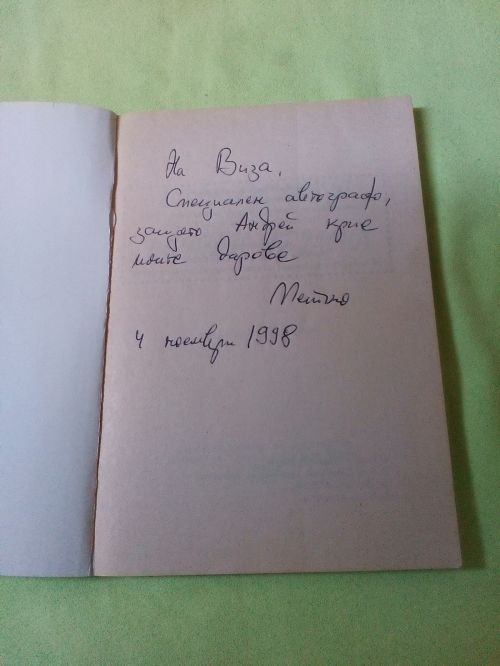 На Виза,
Специален автограф,
защото Андрей крие
моите дарове
4 ноември 1998